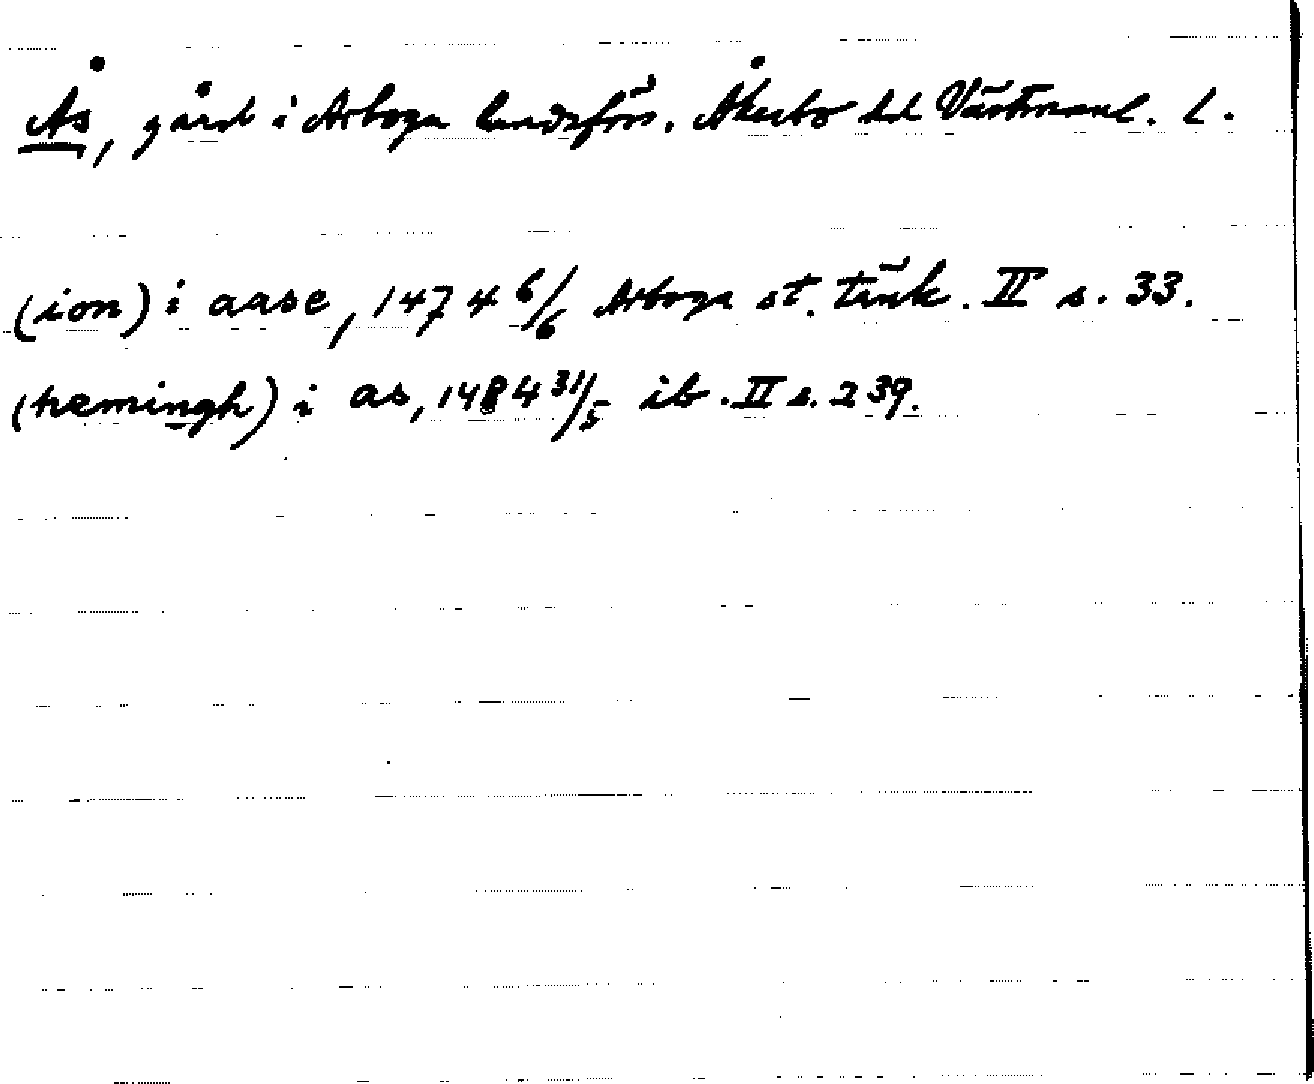 Ås, gård i Arboga landsförs. Åkerbo hd Västmanl. l.
(ion) i aase, 1474 6/6 Arboga st. tänk. II s. 33.
(hemingh) i as, 1484 31/5 ib. II s. 239.